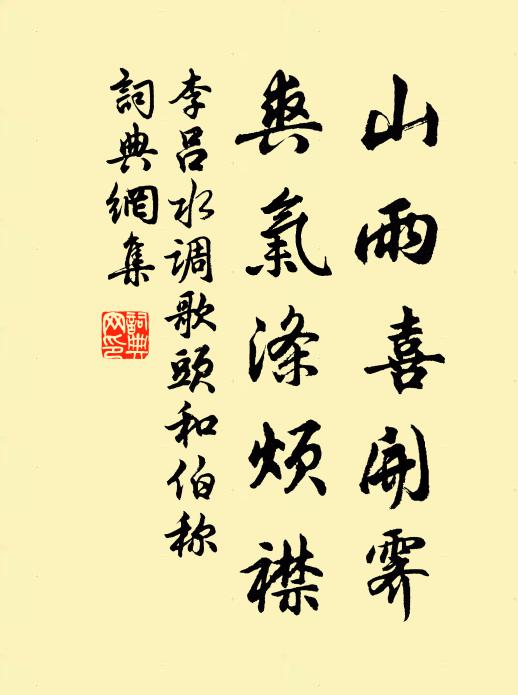 山雨喜開霽
爽氣滌煩襟
李呂水调歌頭和伯称
詞典網集
詞典网印